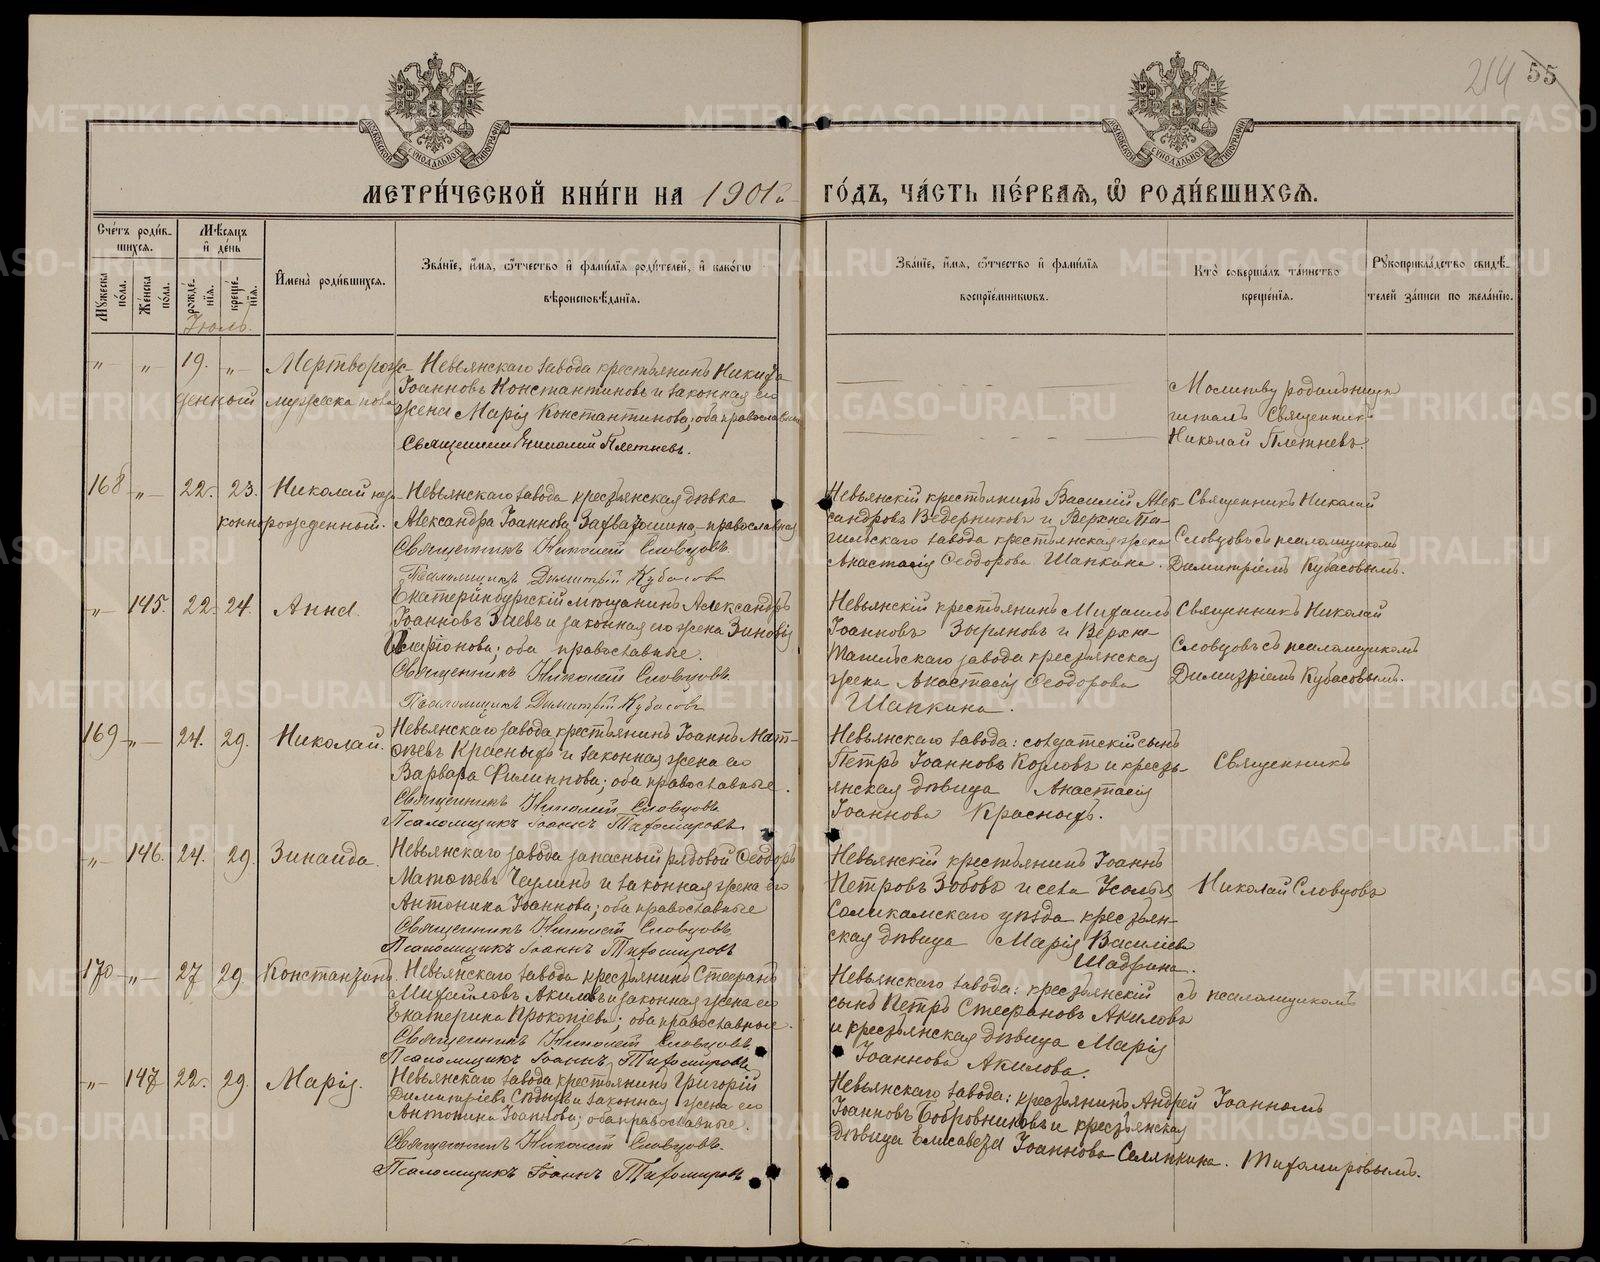 214 55
МЕТРИ́ЧЕСКОЙ КНИ́ГИ НА 1901й ГО́ДЪ, ЧА́СТЬ ПЕ́РВАѦ, Ѡ҆ РОДИ́ВШИХСѦ.
МОСКОВСКОЙ СѴНОДАЛЬНОЙ ТИПОГРАФІИ
МОСКОВСКОЙ СѴНОДАЛЬНОЙ ТИПОГРАФІИ
Сче́тъ роди́вшихсѧ.
Мꙋжеска по́ла.
Же́нска пола.
Мѣ́сѧцъ и҆ де́нь
рожде́нїѧ.
креще́нїѧ.
Іюль.
И҆мена̀ роди́вшихсѧ.
Зва́нїе, и҆́мѧ, ѻ҆́тчество и҆ фами́лїѧ роди́телей, и҆ како́гѡ
вѣроисповѣ́данїѧ.
Зва́нїе, и҆́мѧ, ѻ҆́тчество и҆ фами́лїѧ
воспрїе́мникѡвъ.
Кто̀ соверша́лъ та́инство
креще́нїѧ.
Рꙋкоприкла́дство свидѣ́-
телей за́писи по жела́нїю.
„ „ 19. „ Мертворож-
денный мужска пола
Невьянскаго завода крестьянинъ Никита
Іоанновъ Константиновъ и законная его
жена Марія Константинова; оба православные
Священникъ Николай Плетневъ.
Молитву родильницѣ
читалъ Священникъ
Николай Плетневъ.
168 „ 22. 23. Николай неза-
коннорожденный.
Невьянскаго завода крестьянская дѣвка
Александра Іоаннова Захватошина православная
Священникъ Николай Словцовъ.
Псаломщикъ Димитрій Кубасовъ
Невьянскій крестьянинъ Василій Алек-
сандровъ Ведерниковъ и Верхне-Та-
гильскаго завода крестьянская жена
Анастасія Ѳеодорова Шапкина.
Священникъ Николай
Словцовъ съ псаломщикомъ
Димитріемъ Кубасовымъ.
„ 145. 22. 24. Анна.
Екатеринбургскій мѣщанинъ Александръ
Іоанновъ Заевъ и законная его жена Зиновія
Иларіонова; оба православные.
Священникъ Николай Словцовъ.
Псаломщикъ Димитрій Кубасовъ
Невьянскій крестьянинъ Михаилъ
Іоанновъ Зыряновъ и Верхне-
Тагильскаго завода крестьянская
жена Анастасія Ѳеодорова
Шапкина.
Священникъ Николай
Словцовъ съ псаломщикомъ
Димитріемъ Кубасовымъ.
169 „ 24. 29. Николай.
Невьянскаго завода крестьянинъ Іоаннъ Мат-
ѳѣевъ Красныхъ и законная жена его
Варвара Филиппова; оба православные.
Священникъ Николай Словцовъ
Псаломщикъ Іоаннъ Тихомировъ
Невьянскаго завода: солдатскій сынъ
Петръ Іоанновъ Козловъ и кресть-
янская дѣвица Анастасія
Іоаннова Красныхъ.
Священникъ
„ 146. 24. 29. Зинаида.
Невьянскаго завода запасный рядовой Ѳеодоръ
Матѳѣевъ Чеулинъ и законная жена его
Антонина Іоаннова; оба православные
Священникъ Николай Словцовъ
Псаломщикъ Іоаннъ Тихомировъ
Невьянскій крестьянинъ Іоаннъ
Петровъ Зобовъ и села Усолья
Соликамскаго уѣзда крестьян-
ская дѣвица Марія Василіева
Шадрина.
Николай Словцовъ
170 „ 27 29. Константинъ.
Невьянскаго завода крестьянинъ Стефанъ
Михайловъ Акиловъ и законная жена его
Екатерина Прокопіева; оба православные.
Священникъ Николай Словцовъ.
Псаломщикъ Іоаннъ Тихомировъ
Невьянскаго завода: крестьянскій
сынъ Петръ Стефановъ Акиловъ
и крестьянская дѣвица Марія
Іоаннова Акилова.
съ псаломщикомъ
„ 147 22. 29. Марія.
Невьянскаго завода крестьянинъ Григорій
Димитріевъ Сѣдыхъ и законная жена его
Антонина Іоаннова; оба православные.
Священникъ Николай Словцовъ.
Псаломщикъ Іоаннъ Тихомировъ
Невьянскаго завода: крестьянинъ Андрей
Іоанновъ Бобровниковъ и крестьянская
дѣвица Елисавета Іоаннова Селянкина.
Іоанномъ
Тихомировымъ.
METRIKI.GASO-URAL.RU